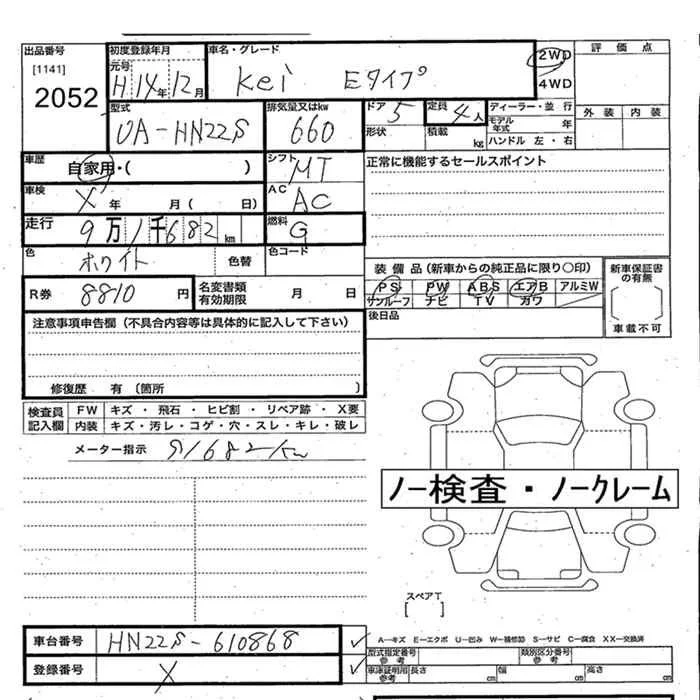 出品番号 初度登録年月 車名・グレード 評価点
[1141] 元号 2WD
2052 H14年12月 Kei Eタイプ 4WD
型式 排気量又はkw ドア 5 定員 4人 ディーラー・並行 外装 内装
UA-HN22S 660 形状 積載 kg モデル年式 年
ハンドル 左・右
車歴 自家用・( ) シフト MT 正常に機能するセールスポイント
車検 X 年 月 ( 日) AC AC
走行 9万1千682km 燃料 G
色 ホワイト 色替 色コード
装備品(新車からの純正品に限り○印) 新車保証書の有無
R券 8810円 名変書類有効期限 月 日 PS PW ABS エアB アルミW
サンルーフ ナビ TV カワ
注意事項申告欄(不具合内容等は具体的に記入して下さい) 後日品 車載不可
修復歴 有 (箇所 )
検査員記入欄 FW キズ・飛石・ヒビ割・リペア跡・X要
内装 キズ・汚レ・コゲ・穴・スレ・キレ・破レ
メーター指示 91682km
ノー検査・ノークレーム
スペアT
[ ]
車台番号 HN22S-610868 A―キズ E―エクボ U―凹み W―補修跡 S―サビ C―腐食 XX―交換済
登録番号 X 型式指定番号 参考 類別区分番号 参考
車庫証明用 参考 長さ cm 幅 cm 高さ cm